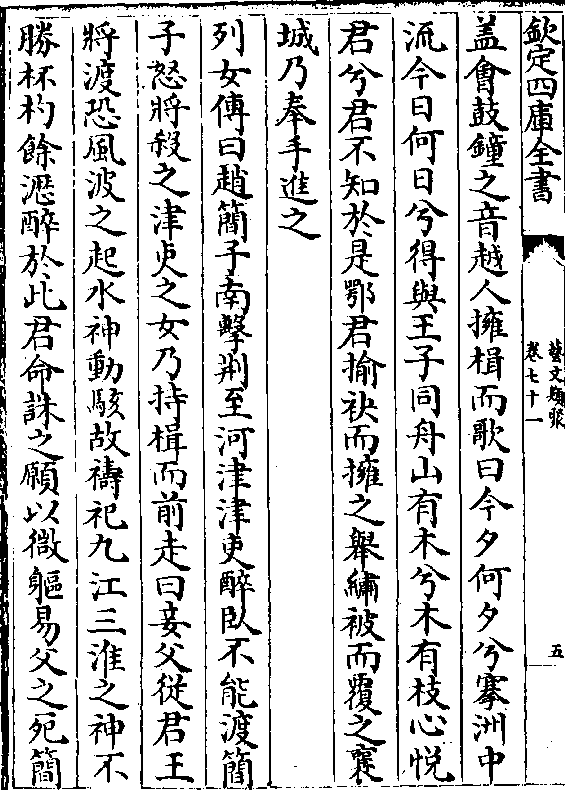 欽定四庫全書
藝文類聚
卷七十一
五
盖會鼓鐘之音越人擁楫而歌曰今夕何夕兮搴洲中
流今日何日兮得與王子同舟山有木兮木有枝心悦
君兮君不知於是鄂君揄袂而擁之舉繡被而覆之襄
城乃奉手進之
列女傳曰趙簡子南擊荆至河津津吏醉臥不能渡簡
子怒將殺之津吏之女乃持楫而前走曰妾父從君王
將渡恐風波之起水神動駭故禱祀九江三淮之神不
勝杯杓餘瀝醉於此君命誅之願以微軀易父之死簡